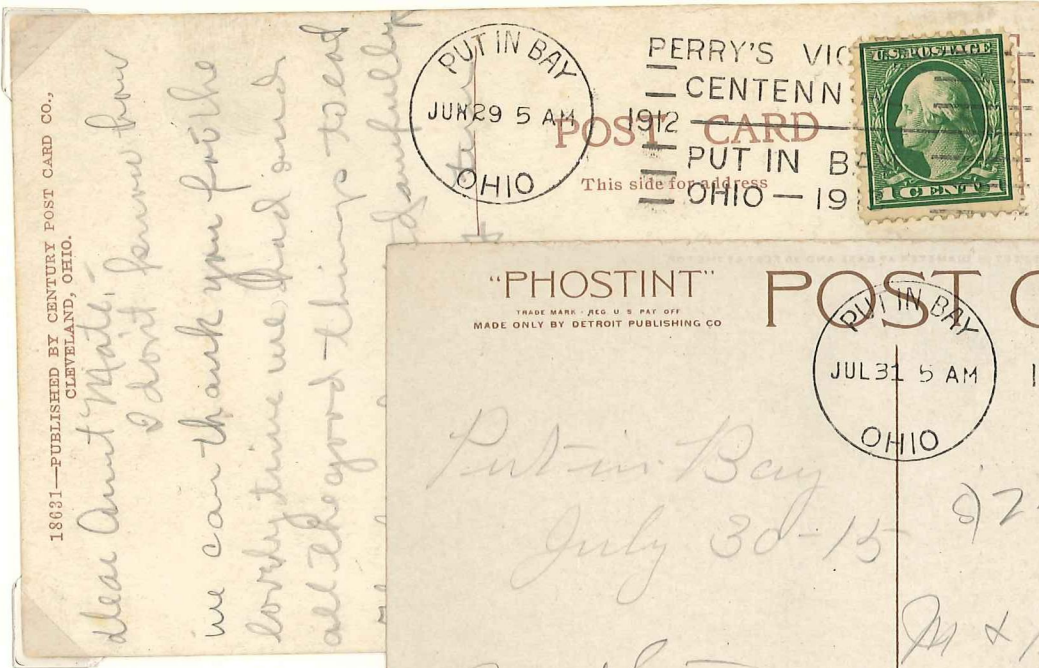 18631—PUBLISHED BY CENTURY POST CARD CO.,
CLEVELAND, OHIO.
Dear Aunt Mate,-
I don't know how
we can thank you for the
lovely time we had and
all the good things to eat
PUT IN BAY
JUN 29 5 AM
1912
OHIO
PERRY'S VIC
CENTENN
PUT IN BA
OHIO — 19
POST CARD
This side for address
U.S. POSTAGE
1 CENT 1
"PHOSTINT"
TRADE MARK · REG. U S PAT OFF
MADE ONLY BY DETROIT PUBLISHING CO
POST C
PUT IN BAY
JUL 31 5 AM
1
OHIO
Put-in-Bay
July 30-15
M &